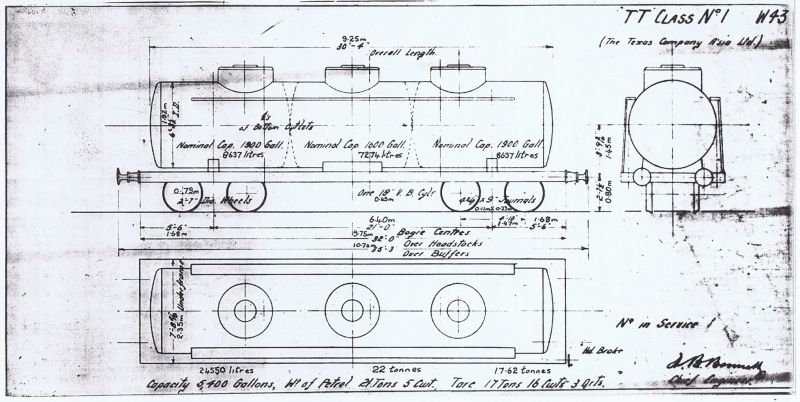 TT CLASS Nº 1 W43
(The Texas Company Asia Ltd.)
9.25m
30'-4"
Overall Length.
1.92m
I.D.
at Bottom Outlets
Nominal Cap. 1900 Gall.
8637 litres
Nominal Cap. 1600 Gall.
7274 litres
Nominal Cap. 1900 Gall.
8637 litres
1.45m
2'-7½"
0.80m
0.79m
2'-7" Dia. Wheels
One 18" V.B. Cylr
Journals
6.40m
21'-0"
Bogie Centres
1.68m
5'-6"
5'-6"
1.68m
9.75m
32'-0"
Over Headstocks
10.75m
35'-3
Over Buffers
2.35m Underframe
Nº in Service 1
Hd. Brake
24550 litres
22 tonnes
17.62 tonnes
Capacity 5,400 Gallons, Wt of Petrol 21 Tons 5 Cwt, Tare 17 Tons 16 Cwts 3 Qrts.
Chief Engineer.